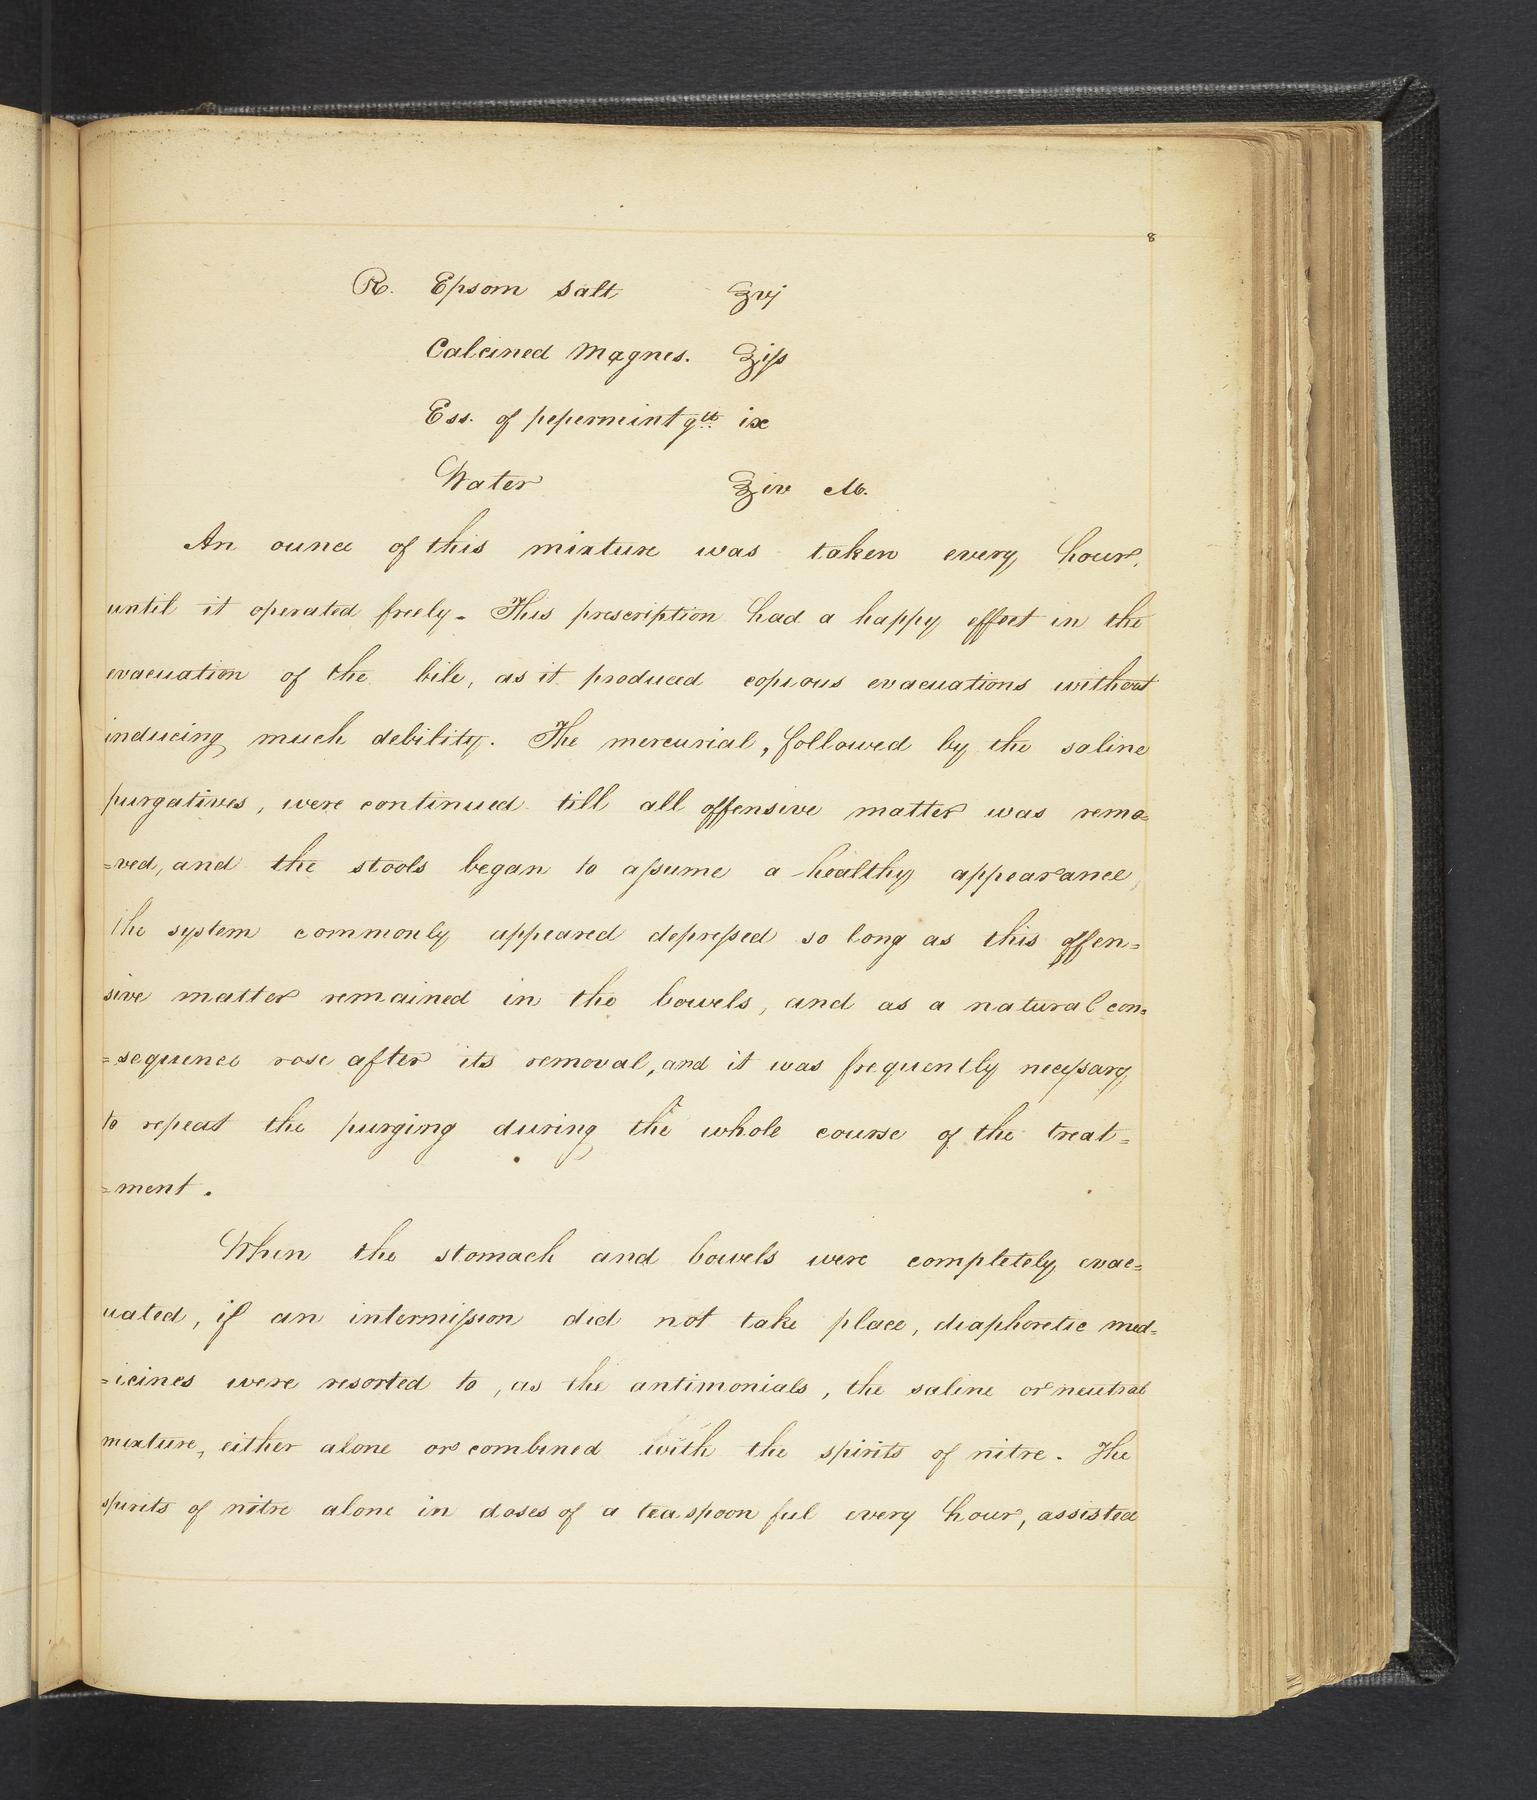 8
R. Epsom Salt ℥vj
Calcined Magnes. ℥iſs
Ess. of pepermint gtt ix
Water ℥iv M.
An ounce of this mixture was taken every hour,
until it operated freely. This prescription had a happy effect in the
evacuation of the bile, as it produced copious evacuations without
inducing much debility. The mercurial, followed by the saline
purgatives, were continued till all offensive matter was remo=
=ved, and the stools began to aſsume a healthy appearance,
The system commonly appeared depreſsed so long as this offen=
sive matter remained in the bowels, and as a natural con=
=sequence rose after its removal, and it was frequently neceſsary
to repeat the purging during the whole course of the treat=
=ment.
When the stomach and bowels were completely evac=
uated, if an intermiſsion did not take place, diaphoretic med=
=icines were resorted to, as the antimonials, the saline or neutral
mixture, either alone or combined with the spirits of nitre. The
spirits of nitre alone in doses of a teaspoon ful every hour, assisted